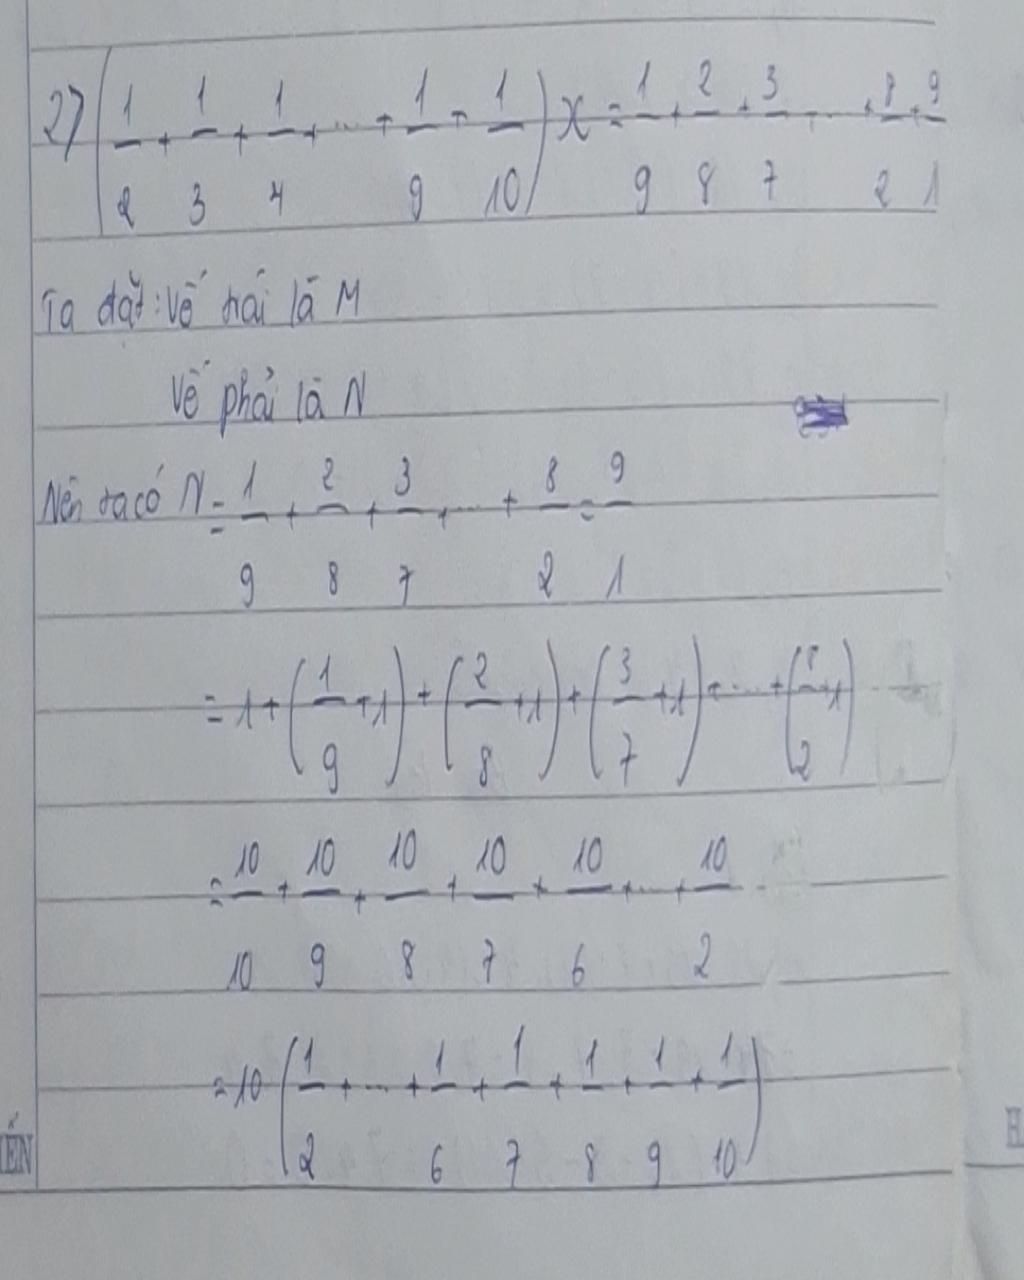 27) (1/2 + 1/3 + 1/4 + ... + 1/9 + 1/10) x = 1/9 + 2/8 + 3/7 + ... + 8/2 + 9/1
Ta đặt: Vế trái là M
Vế phải là N
Nên ta có N = 1/9 + 2/8 + 3/7 + ... + 8/2 = 9/1
= 1 + (1/9 + 1) + (2/8 + 1) + (3/7 + 1) + ... + (8/2 + 1)
= 10/10 + 10/9 + 10/8 + 10/7 + 10/6 + ... + 10/2
= 10 (1/2 + ... + 1/6 + 1/7 + 1/8 + 1/9 + 1/10)
ẾN H